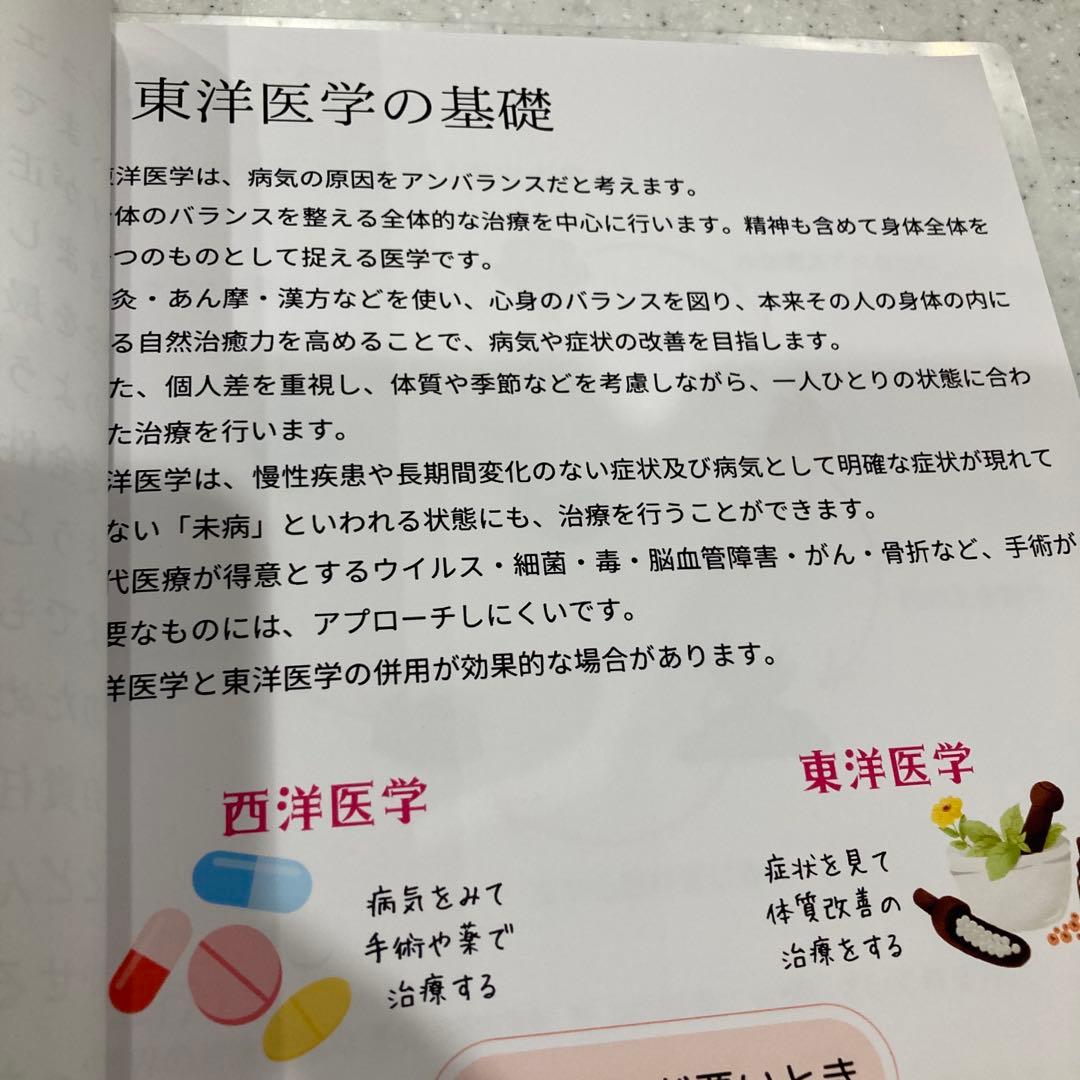 東洋医学の基礎
洋医学は、病気の原因をアンバランスだと考えます。
体のバランスを整える全体的な治療を中心に行います。精神も含めて身体全体を
つのものとして捉える医学です。
灸・あん摩・漢方などを使い、心身のバランスを図り、本来その人の身体の内に
る自然治癒力を高めることで、病気や症状の改善を目指します。
た、個人差を重視し、体質や季節などを考慮しながら、一人ひとりの状態に合わ
た治療を行います。
洋医学は、慢性疾患や長期間変化のない症状及び病気として明確な症状が現れて
ない「未病」といわれる状態にも、治療を行うことができます。
代医療が得意とするウイルス・細菌・毒・脳血管障害・がん・骨折など、手術が
要なものには、アプローチしにくいです。
洋医学と東洋医学の併用が効果的な場合があります。
西洋医学
病気をみて
手術や薬で
治療する
東洋医学
症状を見て
体質改善の
治療をする
が悪いとき